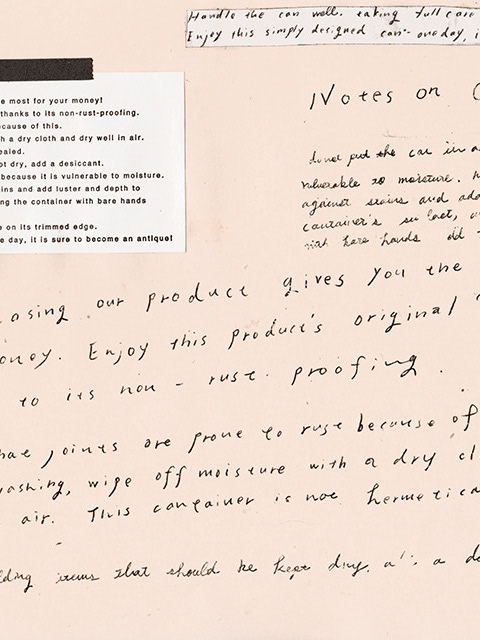 Handle the can well. taking full care
Enjoy this simply designed can - one day, i
e most for your money!
thanks to its non-rust-proofing.
cause of this.
h a dry cloth and dry well in air.
ealed.
ot dry, add a desiccant.
because it is vulnerable to moisture.
ins and add luster and depth to
ng the container with bare hands
e on its trimmed edge.
e day, it is sure to become an antique!
Notes on
do not put the can in a
vulnerable to moisture.
against stains and add
container's
with bare hands
asing our product gives you the
oney. Enjoy this product's original
to its non - rust - proofing.
hat joints are prone to rust because of
washing, wipe off moisture with a dry cl
air. This container is not hermetica
lding items that should be kept dry, a